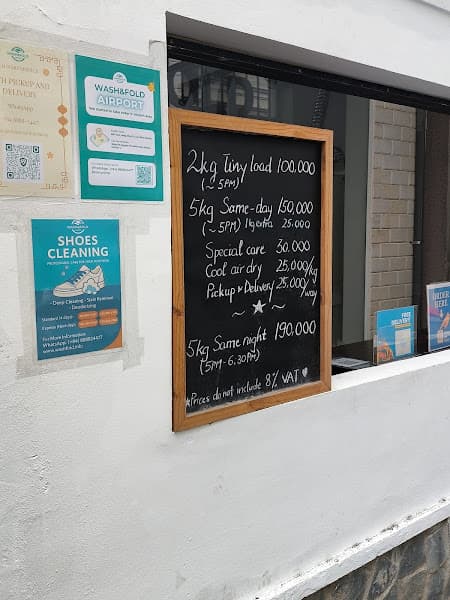 TH PICKUP AND
DELIVERY
WhatsApp
WASH&FOLD
AIRPORT
SHOES
CLEANING
- Deep Cleaning - Stain Removal
- Deodorizing
For More Information:
2kg Tiny load 100,000
(~5PM)
5kg Same-day 150,000
(~5PM) 1kg extra 25,000
Special care 30.000
Cool air dry 25,000/kg
Pickup & Delivery 25,000/way
~ ★ ~
5kg Same night 190,000
(5PM-6:30PM)
*Prices do not include 8% VAT ♥
FREE
DELIVERY
ORDER
HERE